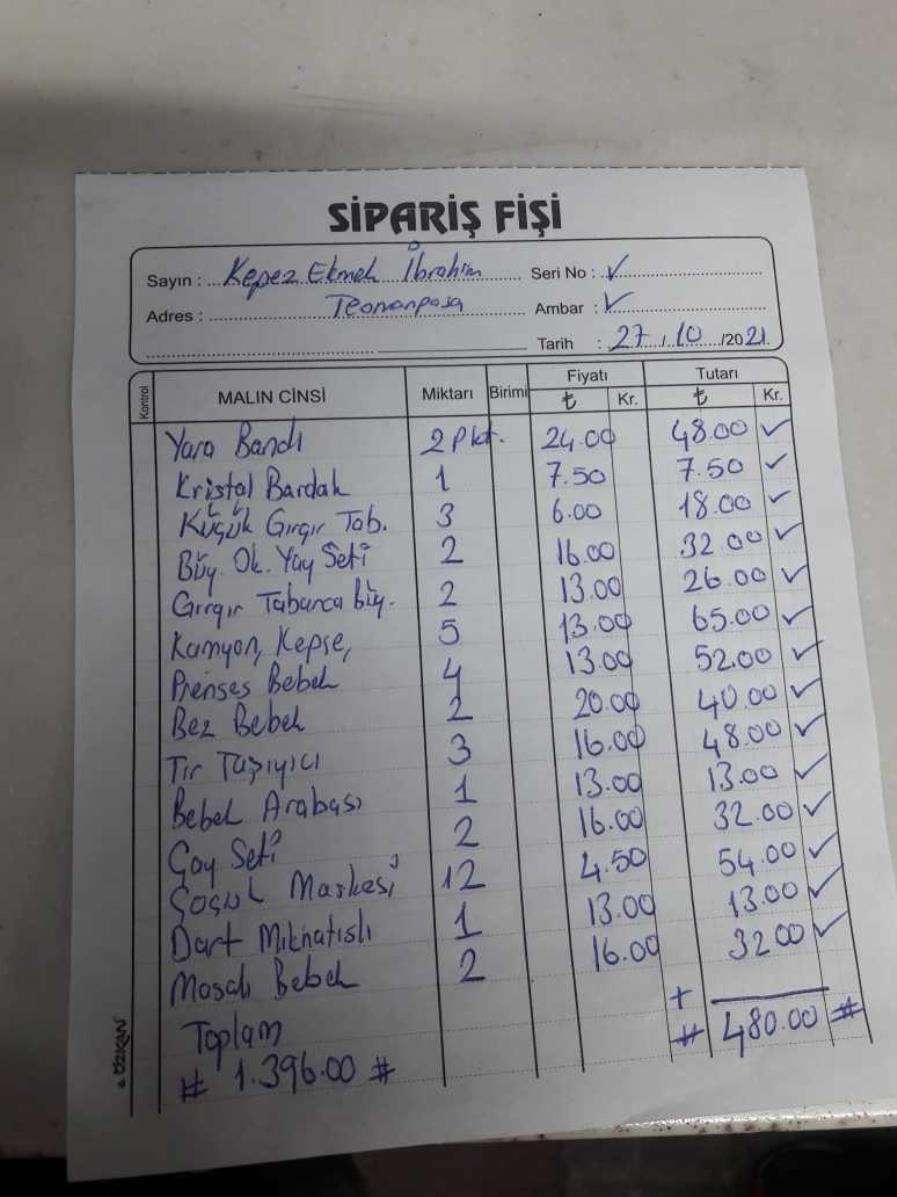 SİPARİŞ FİŞİ
Sayın : Kepez Ekmek İbrahim Seri No : ✓
Adres : Teomanpaşa Ambar : ✓
Tarih : 27/10/2021
Kontrol MALIN CİNSİ Miktarı Birimi Fiyatı ₺ Kr. Tutarı ₺ Kr.
Yara Bandı 2 Pkt. 24.00 48.00 ✓
Kristal Bardak 1 7.50 7.50 ✓
Küçük Gırgır Tab. 3 6.00 18.00 ✓
Büy. Ok. Yay Seti 2 16.00 32.00 ✓
Gırgır Tabanca büy. 2 13.00 26.00 ✓
Kamyon, Kepçe, 5 13.00 65.00 ✓
Prenses Bebek 4 13.00 52.00 ✓
Bez Bebek 2 20.00 40.00 ✓
Tır Taşıyıcı 3 16.00 48.00 ✓
Bebek Arabası 1 13.00 13.00 ✓
Çay Seti 2 16.00 32.00 ✓
Çoçuk Maskesi 12 4.50 54.00 ✓
Dart Mıknatıslı 1 13.00 13.00 ✓
Masalı Bebek 2 16.00 32.00 ✓
+
Toplam # 480.00 #
# 1.396.00 #
ÖZKAN